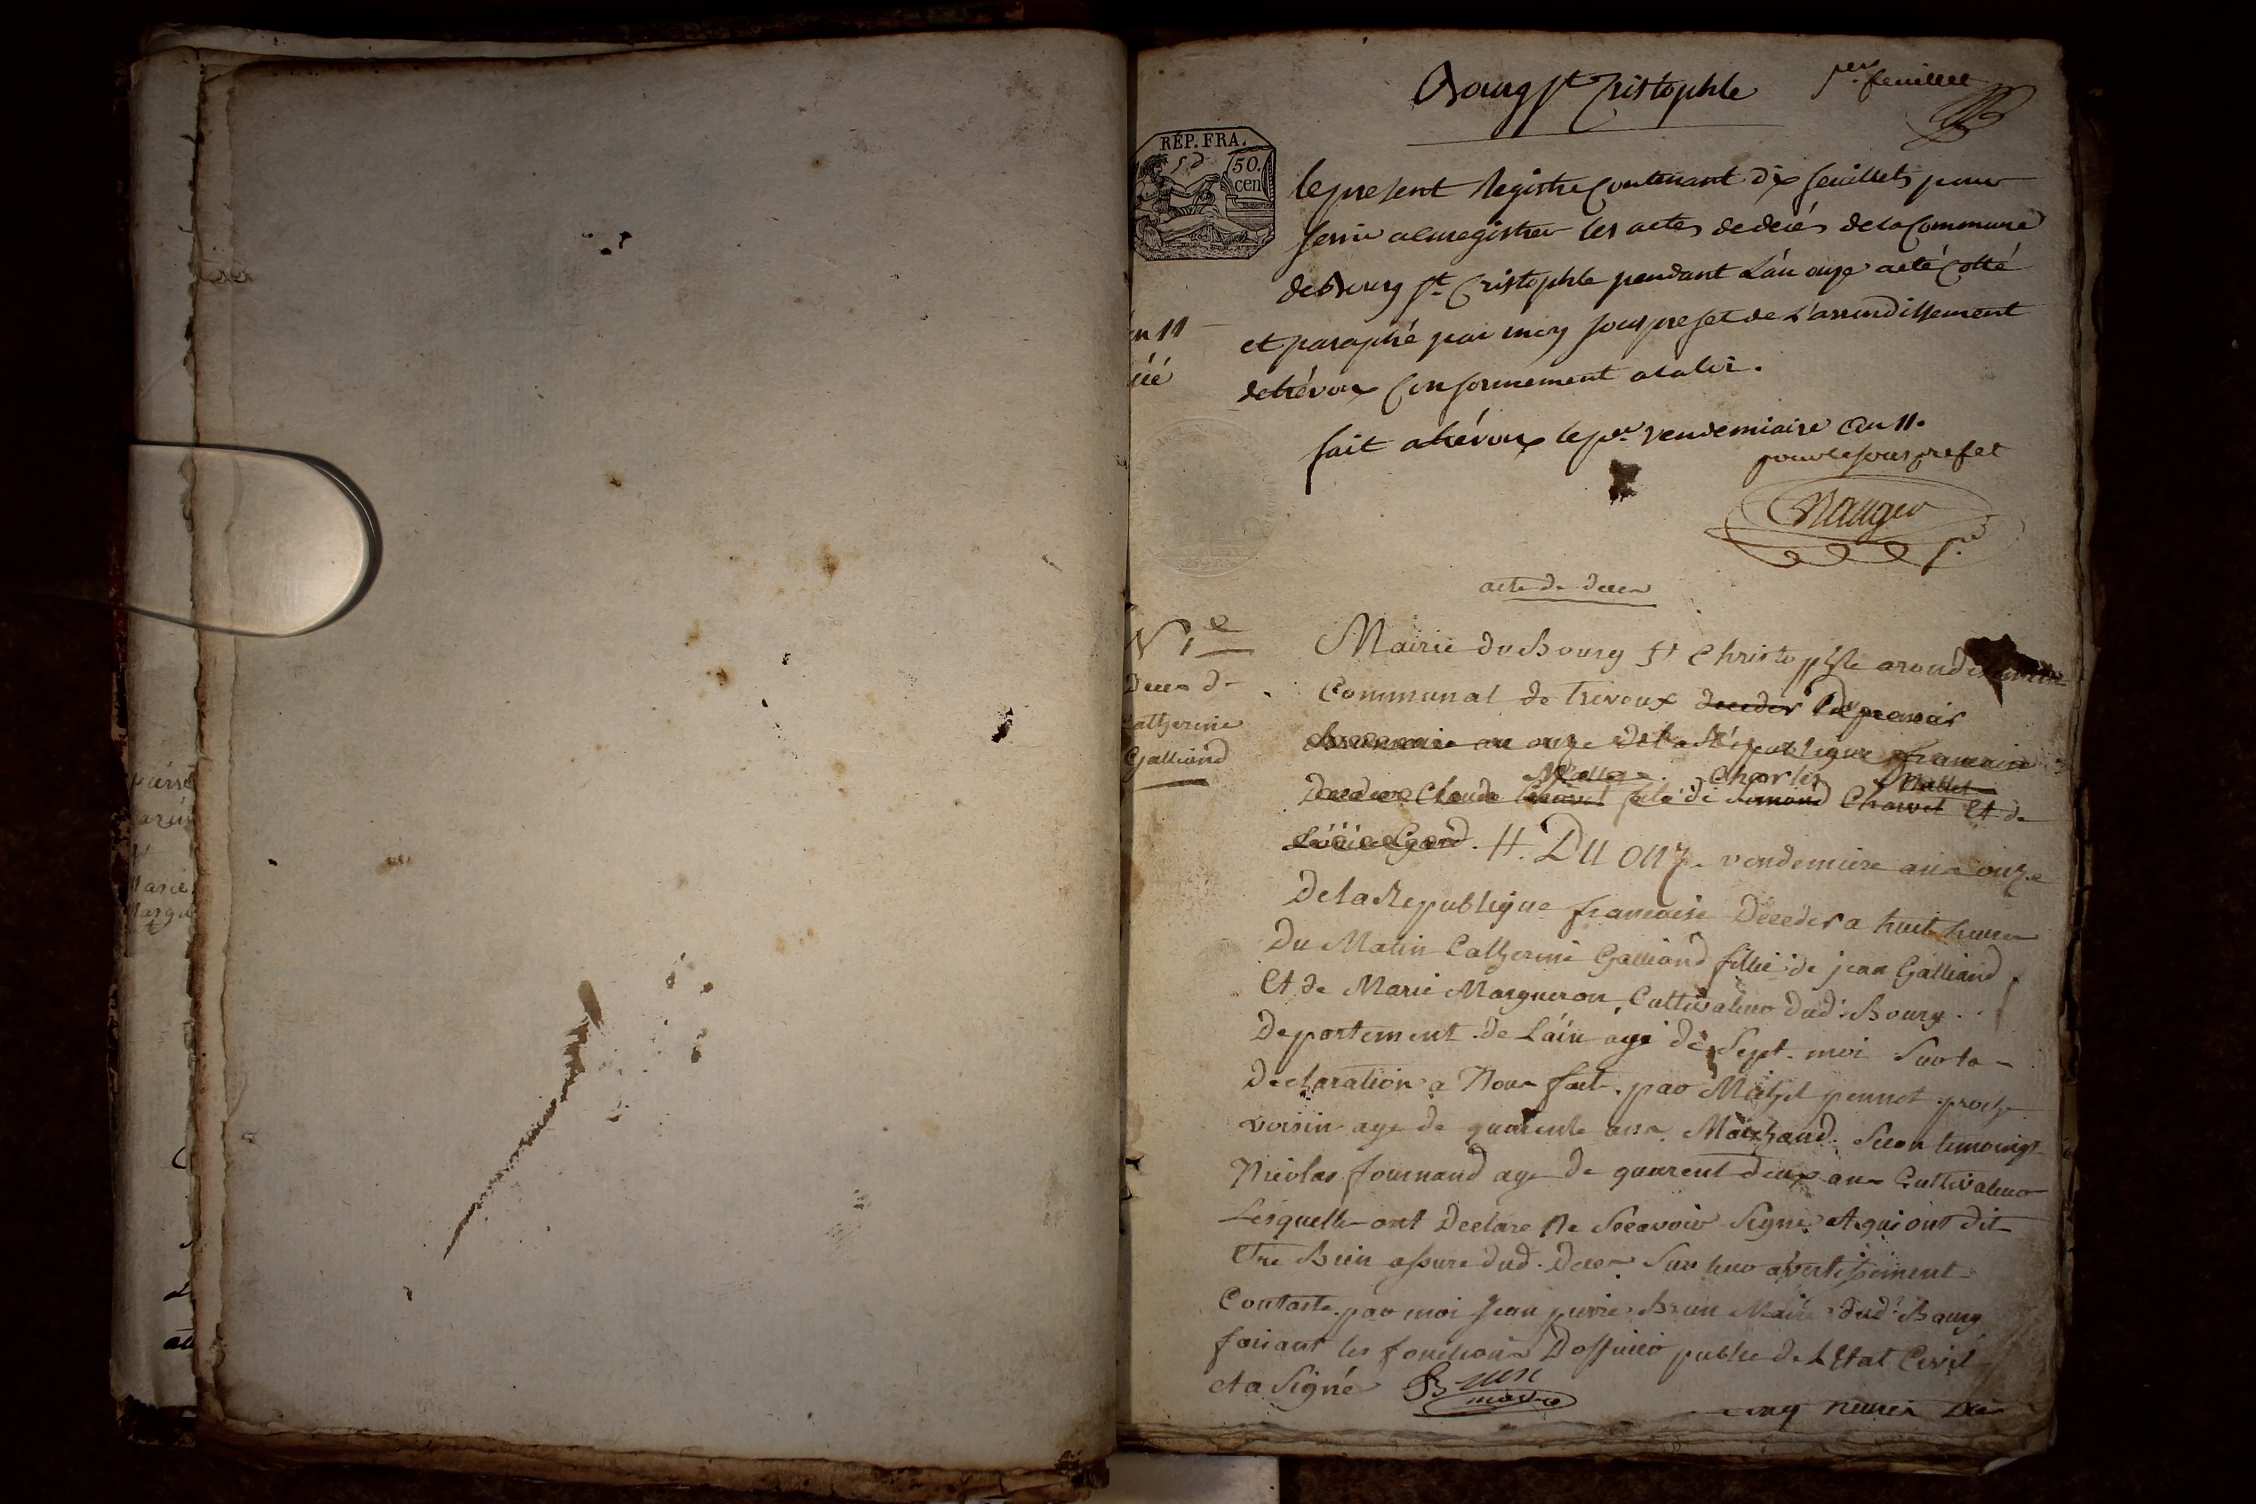 Bourg St Cristophle
1er feuillet
RÉP. FRA.
50.
cen
le present Registre Contenant dix feuillets pour
servir a enregistrer les actes de decés de la Commune
de Bourg St Cristophle pendant L'an onze a eté Cotté
et paraphé par moy sous prefet de L'arrondissement
de trévoux Conformement a la loi.
n 11
fait a trévoux le per vendemiaire an 11.
pour le sous prefet
acte de deces
N 1e
Deces de
Catherine
Galliand
Mairie du Bourg St Christophle arondissement
Communal de Trevoux deceder Du premair
Brumaire an onze de la République francaise
Decedee Claude fils de Simond Chauvet Et de
Mallet Charles Mallet
Du onze vendemiere an onze
De la Republique francaise Deceder a huit heures
Du Matin Catherine Galliand fillie de jean Galliand
Et de Marie Margueron, Cultivateur dud. Bourg
Departement de Lain age de Sept moi Sur la
Declaration a Nous fait par Michel pennet proche
voisin age de quarente ans Marchand Secon temoingt
Nicolas fournand age de quarent deux ans Cultivateur
Lesquelle ont Declare Ne Scavoir Signe et qui ont dit
Etre Bien assure dud. Deces Sur leur avertissement
Contaste par moi Jean pierre Brun Maire dud. Bourg
faisant les fonctions Dofficier public de L'Etat Civil
et a Signé Brun
maire